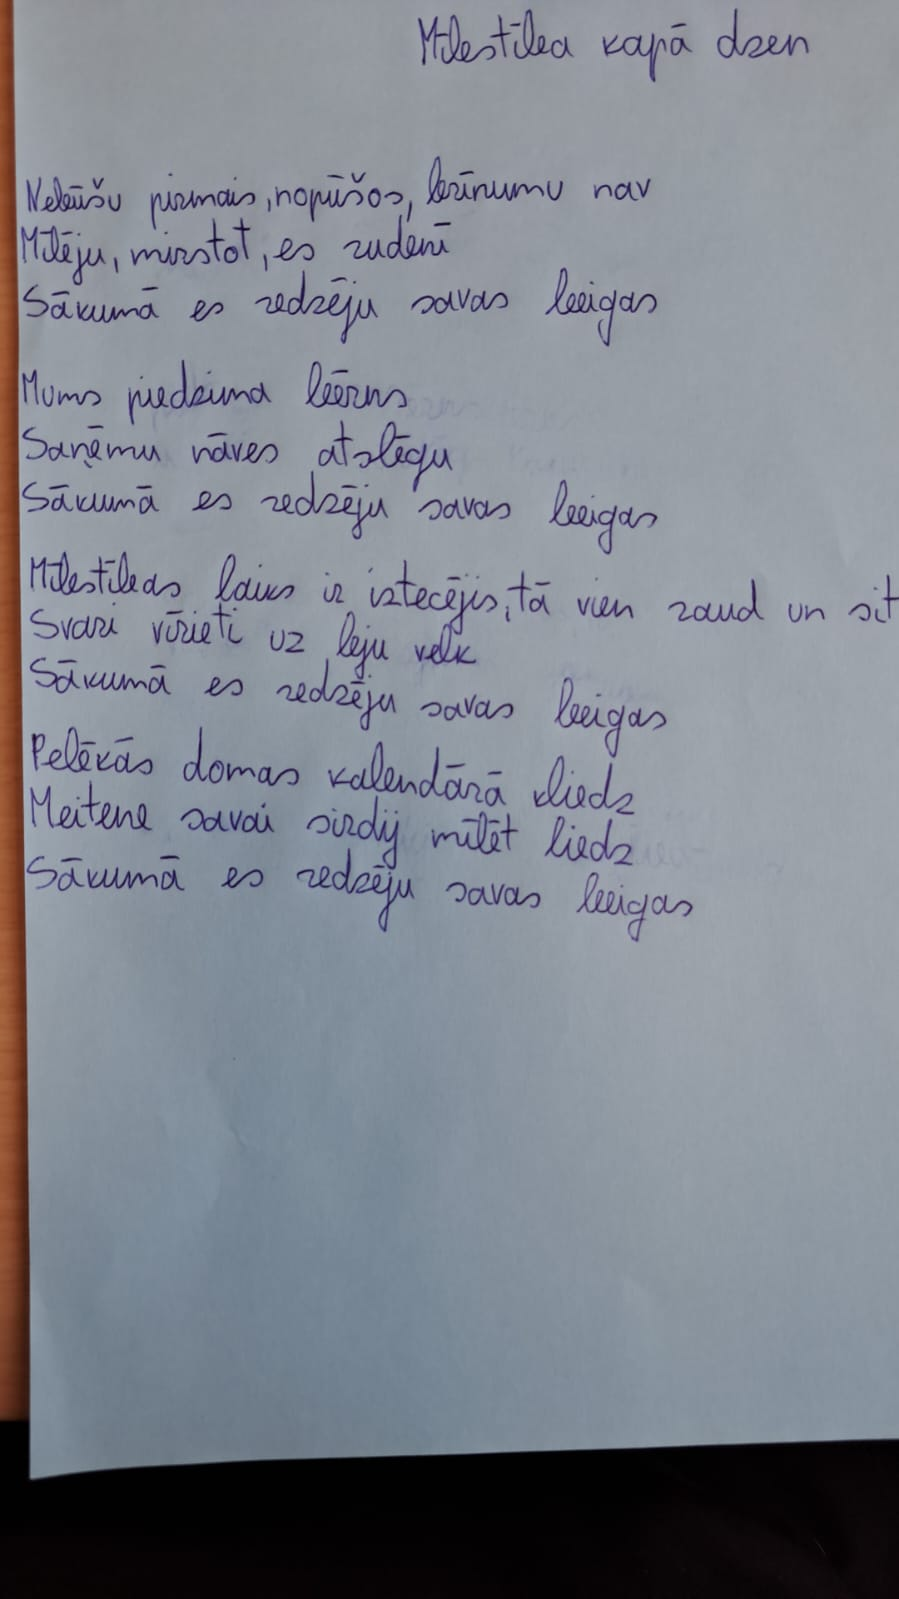 Mīlestība kapā dzen
Nebūšu pirmais, nopūšos, brīnumu nav
Mīlēju, mirstot, es rudenī
Sākumā es redzēju savas beigas
Mums piedzima bērns
Saņēmu nāves atslēgu
Sākumā es redzēju savas beigas
Mīlestības laiks ir iztecējis, tā vien raud un sit
Svari vīrieti uz leju velk
Sākumā es redzēju savas beigas
Pelēkās domas kalendārā kliedz
Meitene savai sirdij mīlēt liedz
Sākumā es redzēju savas beigas